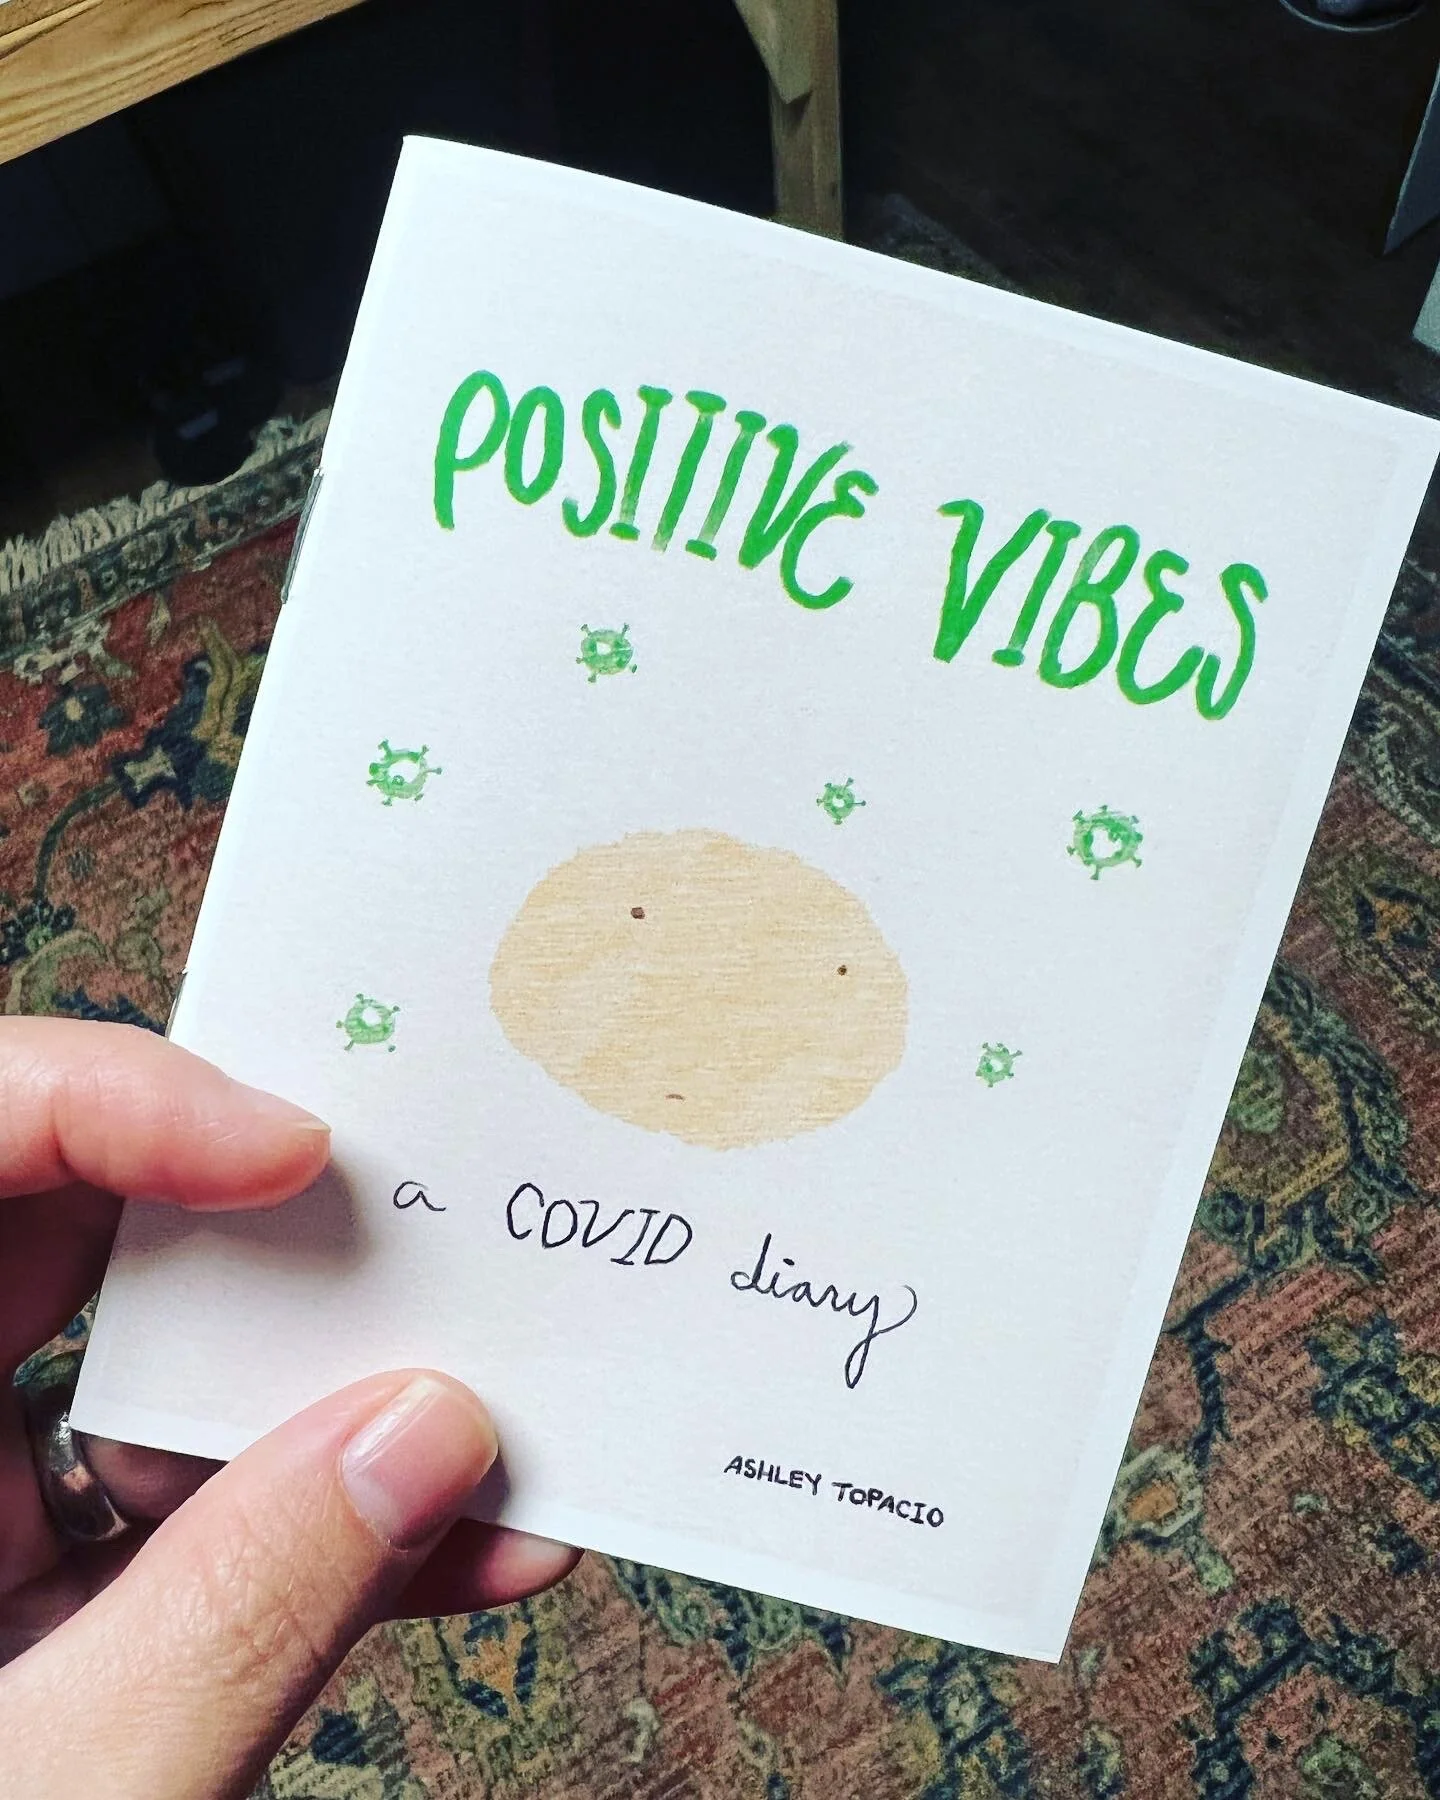 POSITIVE VIBES
a COVID diary
ASHLEY TOPACIO